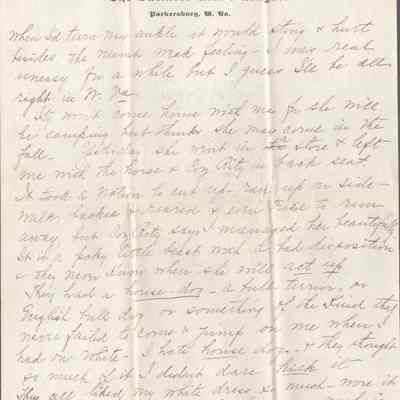 Parkersburg, W. Va.
when I'd turn my ankle it would sting & hurt
besides the numb mad feeling - I was real
uneasy for a while but I guess I'll be all
right in W. Va.
won't come home with me for she will
be camping but thinks she may come in the
fall. she went in store & left
me with the horse & in back seat
It took a notion to cut up - ran up on side-
walk, backed & reared & even tried to run
away, but say I managed her beautifully
It is a poky little beast with a bad disposition
& they never know when she will act up
They had a house-dog - a bull terrier, or
English bull dog or something of the kind they
never failed to come & jump on me when I
had on white - I hate house dogs. & they thought
so much of it I didn't dare kick it
They all liked my white dress so much - wore it